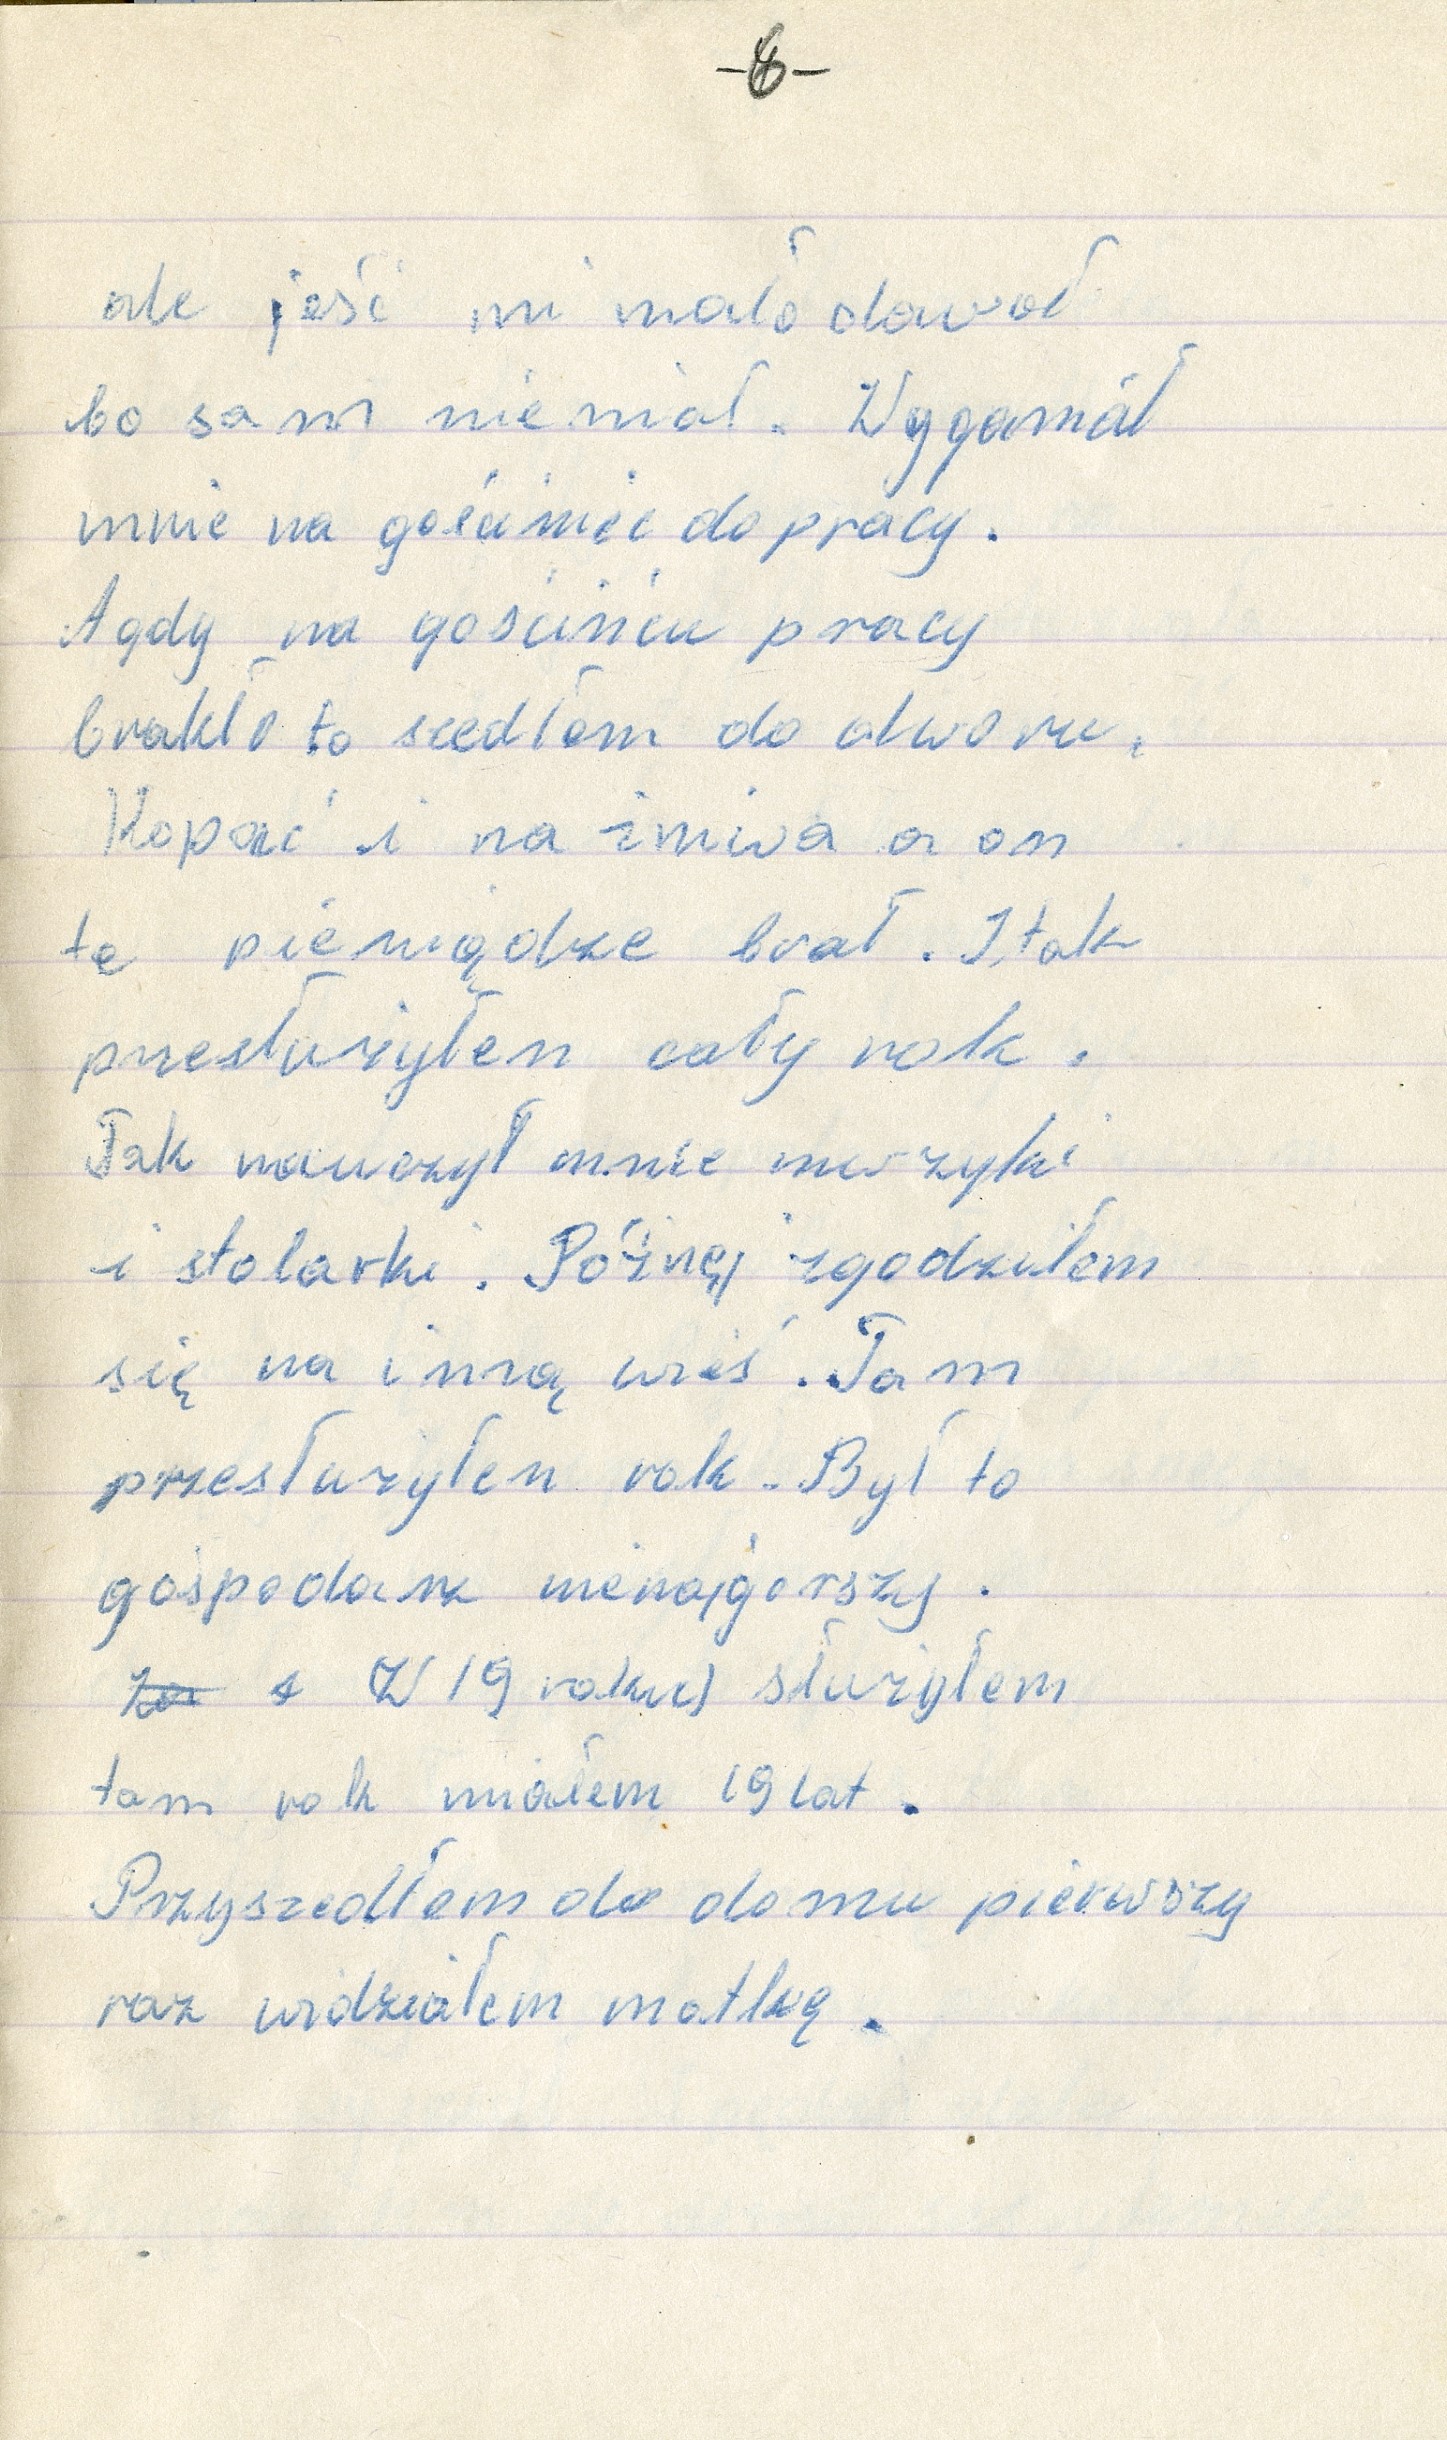 ale jeść mi mało dawał
bo sam niemiał. Wyganiał
mnie na gościniec do pracy.
A gdy na gościńcu pracy
brakło to szedłem do dworu.
Kopać i na żniwa a on
te pieniądze brał. I tak
przesłużyłen cały rok.
Tak nauczył mnie muzyki
i stolarki. Póżnej zgodziłem
się na inną wieś. Tam
przesłużyłen rok. Był to
gospodarz nienajgorszy.
W 19 roku służyłem
tam rok miałem 19 lat.
Przyszedłem do domu pierwszy
raz widziałem matkę.